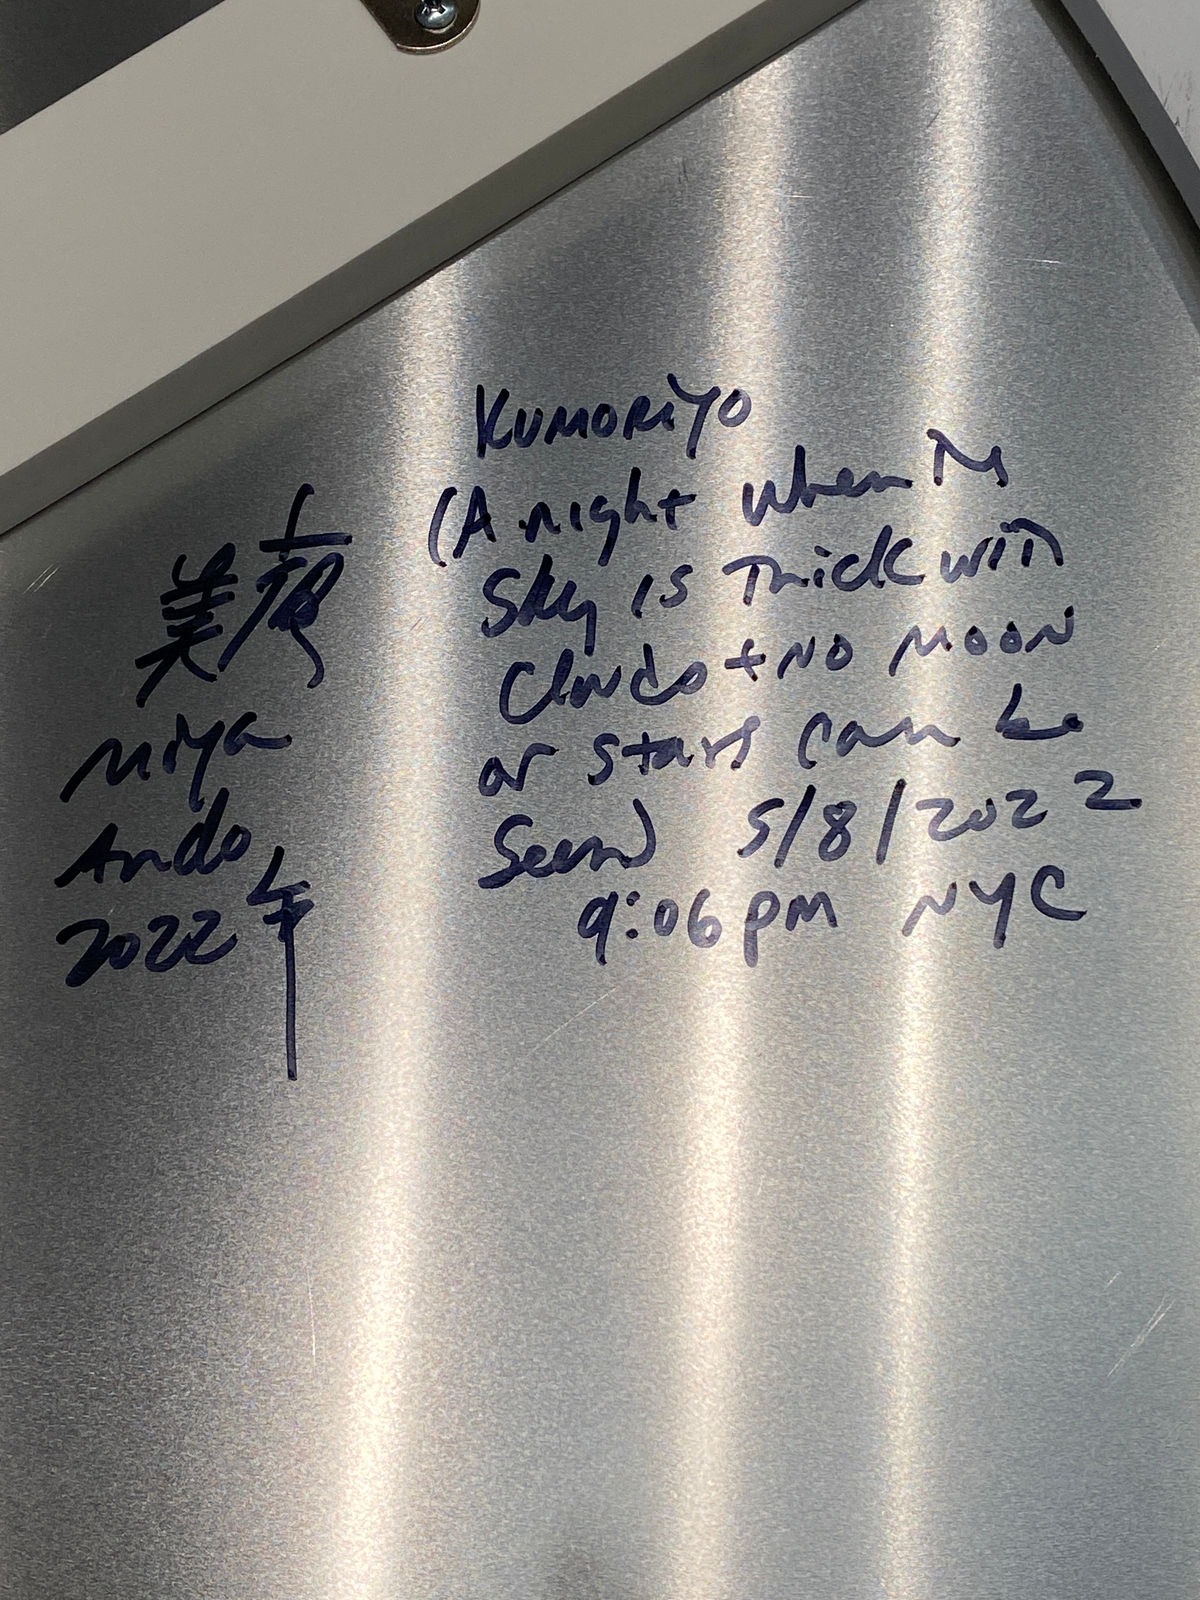 KUMORIYO
(A night when the
Sky is Thick with
Clouds + NO MOON
or stars can be
Seen) 5/8/2022
9:06 pm NYC
美夜
Miya
Ando
2022年